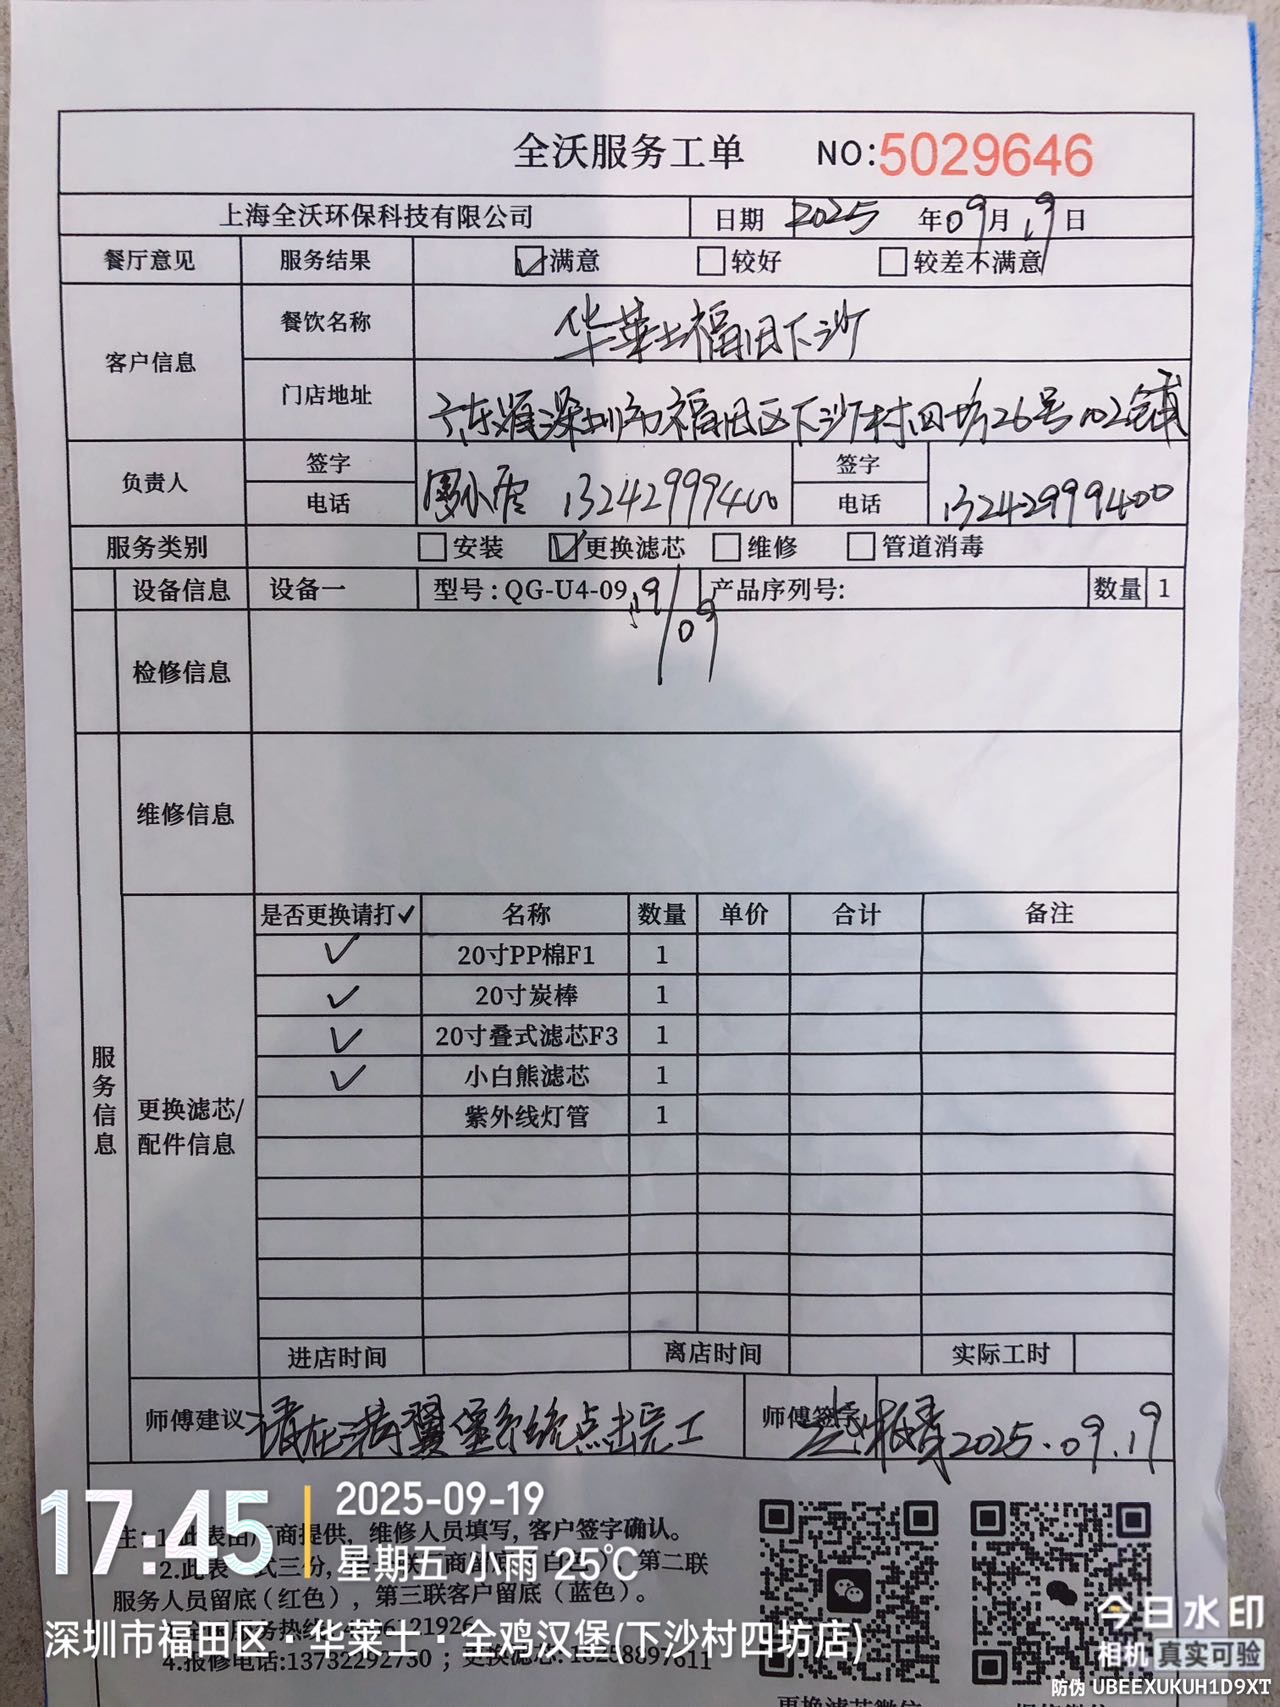 全沃服务工单 NO:5029646
上海全沃环保科技有限公司 日期 2025 年09月19日
餐厅意见 服务结果 ☑满意 □较好 □较差不满意
客户信息 餐饮名称 华莱士福田下沙
门店地址 广东省深圳市福田区下沙村四坊26号102铺
负责人 签字 签字
电话 13242999400 电话 13242999400
服务类别 □安装 ☑更换滤芯 □维修 □管道消毒
设备信息 设备一 型号:QG-U4-09 产品序列号: 数量 1
19/09
检修信息
维修信息
是否更换请打✓ 名称 数量 单价 合计 备注
✓ 20寸PP棉F1 1
✓ 20寸炭棒 1
✓ 20寸叠式滤芯F3 1
✓ 小白熊滤芯 1
紫外线灯管 1
服务信息
更换滤芯/
配件信息
进店时间 离店时间 实际工时
师傅建议 请在满翼堡系统点击完工 师傅签字 2025.09.19
注:1.此表由厂商提供,维修人员填写,客户签字确认。
2.此表一式三份, 第二联
服务人员留底(红色),第三联客户留底(蓝色)。
4.报修电话:13732292730;更换滤芯:
17:45
2025-09-19
星期五 小雨 25℃
深圳市福田区·华莱士·全鸡汉堡(下沙村四坊店)
今日水印
相机 真实可验
防伪 UBEEXUKUH1D9XT